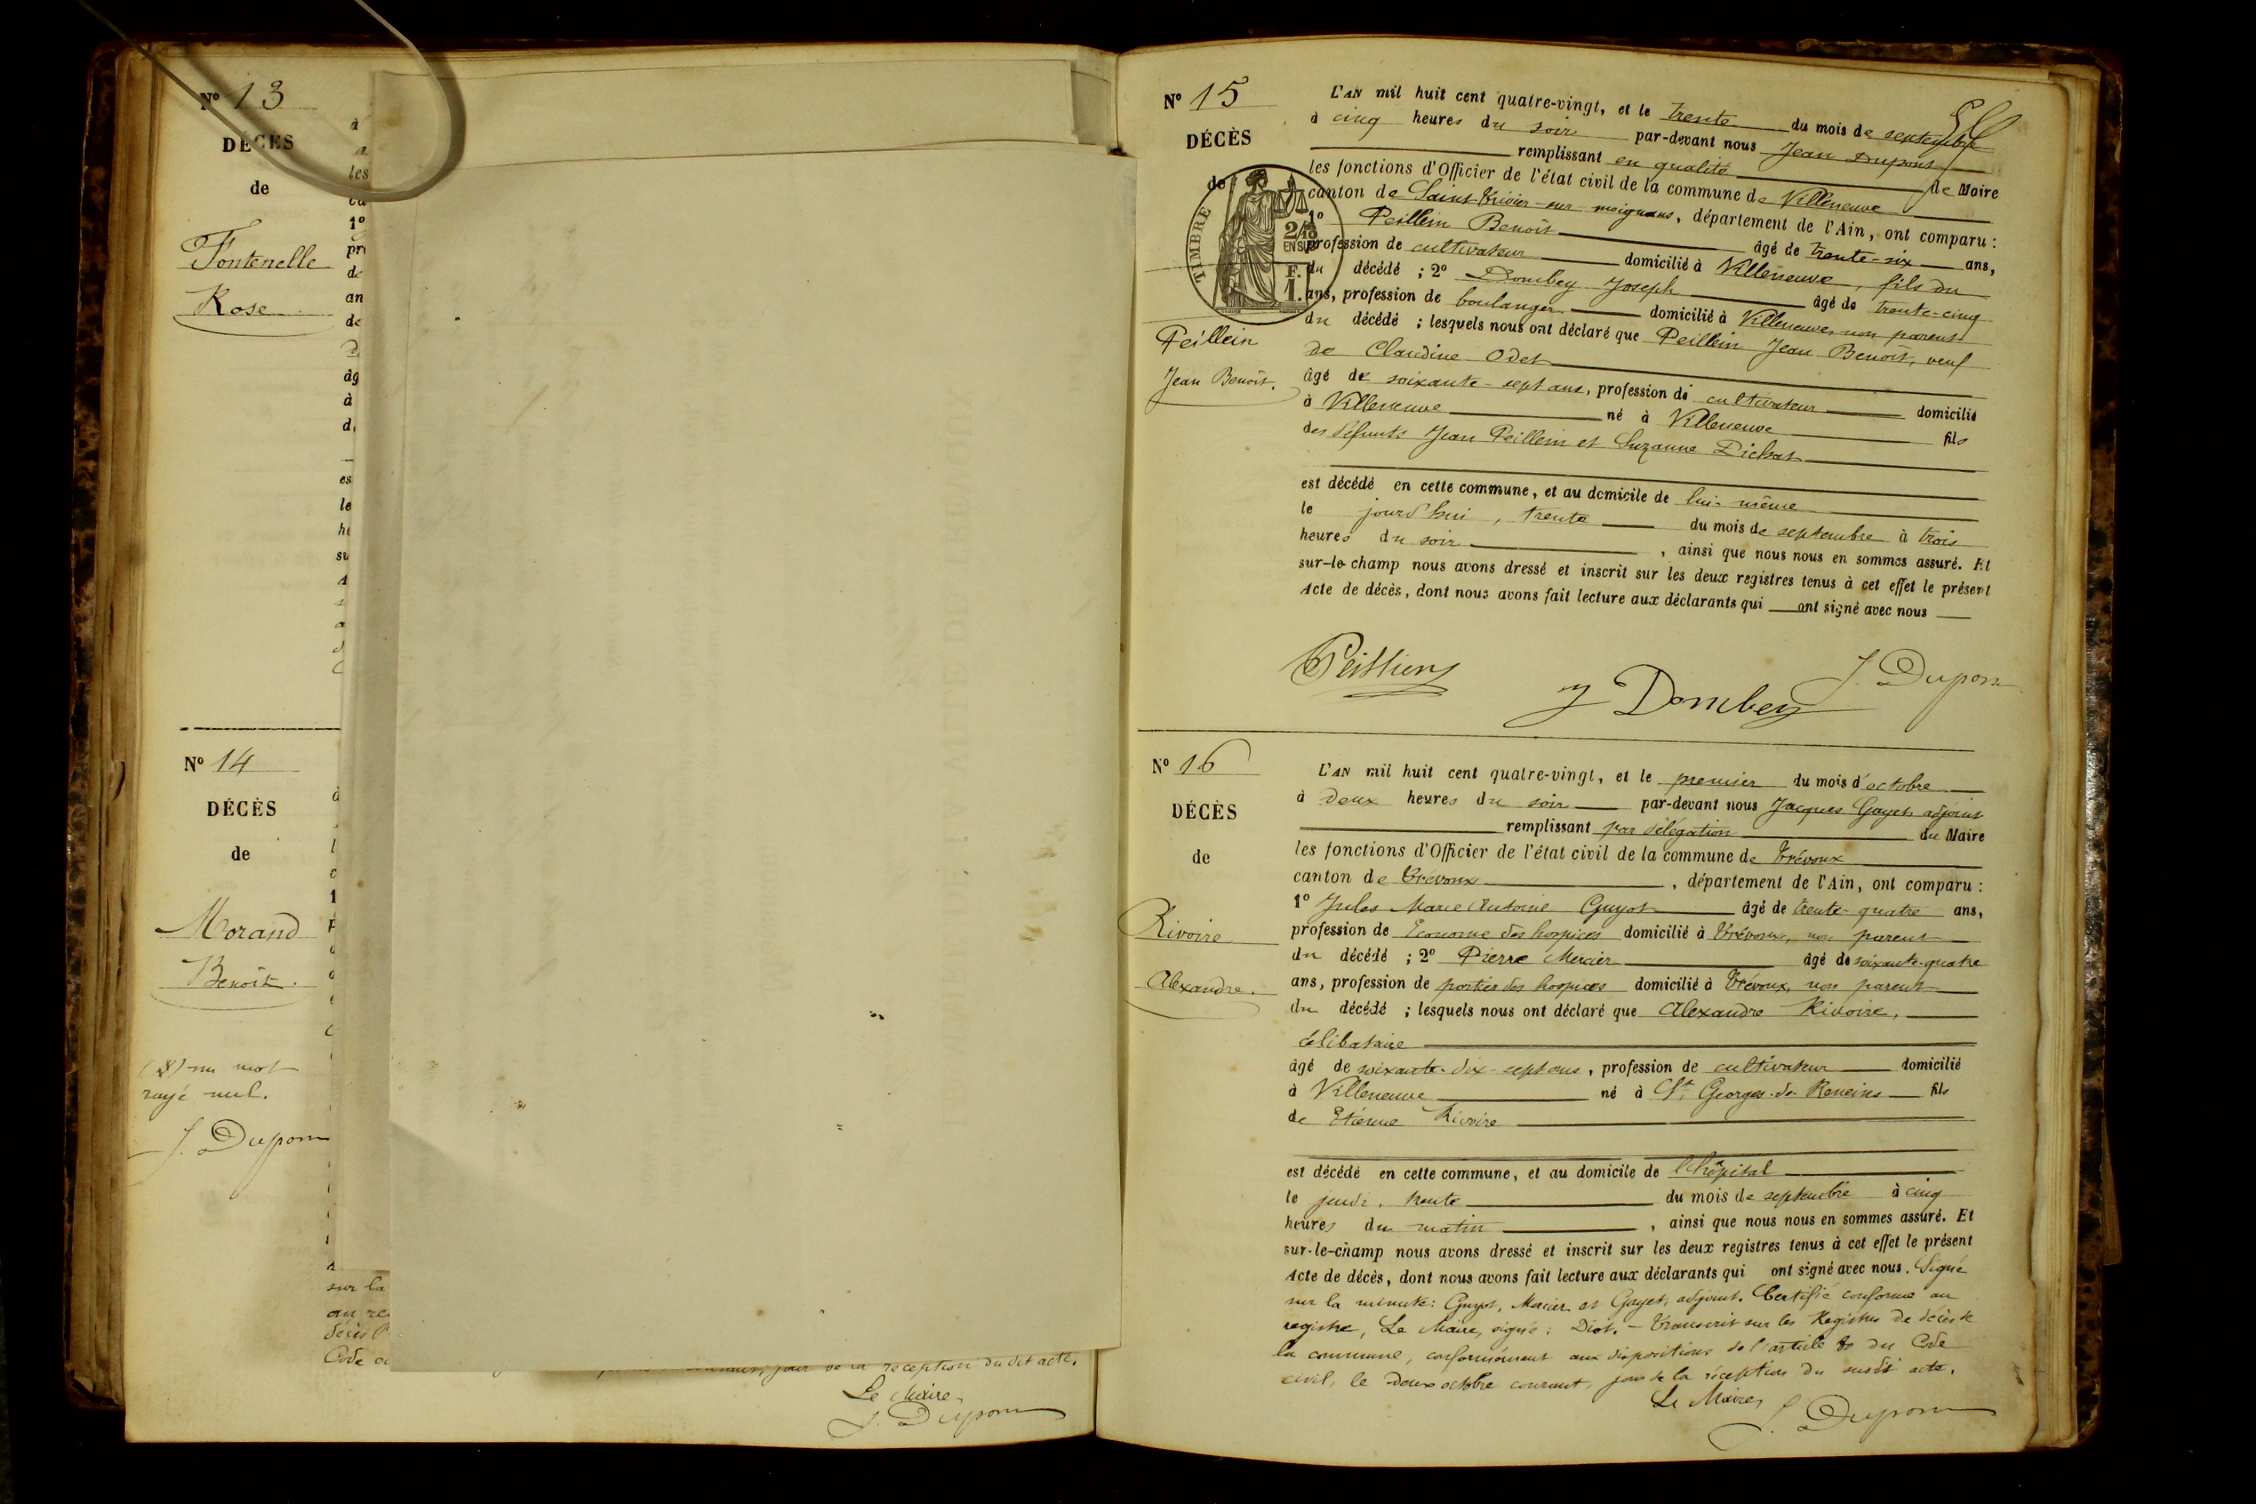 Nº 13
DÉCÈS
de
Fontenelle
Rose
Nº 14
DÉCÈS
de
Morand
Benoît.
un mot
rayé nul.
J. Dupont
sur la
au re
décès
Code
réception du dit acte.
Le Maire
J. Dupont
Nº 15
DÉCÈS
de
TIMBRE
2/10
EN SUS
1 F.
Peillein
Jean Benoît.
L'AN mil huit cent quatre-vingt, et le trente du mois de septembre
à cinq heures du soir par-devant nous Jean Dupont
remplissant en qualité de Maire
les fonctions d'Officier de l'état civil de la commune de Villeneuve
canton de Saint Trivier-sur moignans, département de l'Ain, ont comparu :
1º Peillein Benoît âgé de trente-six ans,
profession de cultivateur domicilié à Villeneuve, fils du
du décédé ; 2º Dombey Joseph âgé de trente-cinq
ans, profession de boulanger domicilié à Villeneuve, non parent
du décédé ; lesquels nous ont déclaré que Peillein Jean Benoît, veuf
de Claudine Odet
âgé de soixante-sept ans, profession de cultivateur domicilié
à Villeneuve né à Villeneuve fils
des défunts Jean Peillein et Suzanne Dichat
est décédé en cette commune, et au domicile de lui-même
le jourd'hui, trente du mois de septembre à trois
heures du soir, ainsi que nous nous en sommes assuré. Et
sur-le-champ nous avons dressé et inscrit sur les deux registres tenus à cet effet le présent
Acte de décès, dont nous avons fait lecture aux déclarants qui ont signé avec nous
Peillein
J Dombey
J. Dupont
Nº 16
DÉCÈS
de
Rivoire
Alexandre.
L'AN mil huit cent quatre-vingt, et le premier du mois d'octobre
à deux heures du soir par-devant nous Jacques Gayet, adjoint
remplissant par délégation du Maire
les fonctions d'Officier de l'état civil de la commune de Trévoux
canton de Trévoux, département de l'Ain, ont comparu :
1º Jules Marie Antoine Guyot âgé de trente-quatre ans,
profession de Econome des hospices domicilié à Trévoux, non parent
du décédé ; 2º Pierre Mercier âgé de soixante-quatre
ans, profession de portier des hospices domicilié à Trévoux, non parent
du décédé ; lesquels nous ont déclaré que Alexandre Rivoire,
célibataire
âgé de soixante-dix-sept ans, profession de cultivateur domicilié
à Villeneuve né à St Georges-de Reneins fils
de Etienne Rivoire
est décédé en cette commune, et au domicile de l'hôpital
le jeudi, trente du mois de septembre à cinq
heures du matin, ainsi que nous nous en sommes assuré. Et
sur-le-champ nous avons dressé et inscrit sur les deux registres tenus à cet effet le présent
Acte de décès, dont nous avons fait lecture aux déclarants qui ont signé avec nous. Signé
sur la minute : Guyot, Mercier et Gayet, adjoint. Certifié conforme au
registre, Le Maire, signé : Diot. – Transcrit sur les Registres de décès de
la commune, conformément aux dispositions de l'article 80 du Code
civil, le deux octobre courant, jour de la réception du susdit acte.
Le Maire,
J. Dupont